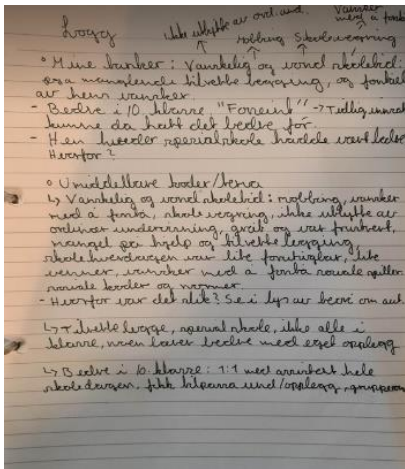 Logg
ikke utbytte av ord. und.
Vansker med å forstå
mobbing Skolevegring
◦ Mine tanker: Vanskelig og vond skoletid:
pga manglende tilrettelegging, og
av hens vansker.
- Bedre i 10. klasse. "Forseint" -> Tidlig
kunne da hatt det bedre før.
- Hen spesialskole hadde vært bedre
Hvorfor?
◦ Umiddelbare koder/
↳ Vanskelig og vond skoletid: mobbing, vansker
med å forstå, skolevegring, ikke utbytte av
ordinær undervisning, gråt og var frustrert,
mangel på hjelp og tilrettelegging,
skolehverdagen var lite forutsigbar, lite
venner, vansker med å forstå sosiale spiller
sosiale koder og normer.
- Hvorfor var det slik? Se i lys av teori om aut.
↳ Tilrettelegge, spesialskole, ikke alle i
klasse, noen lærer bedre med eget opplegg
↳ Bedre i 10. klasse: 1:1 med assistent hele
skoledagen, fikk tilpassa und/opplegg,